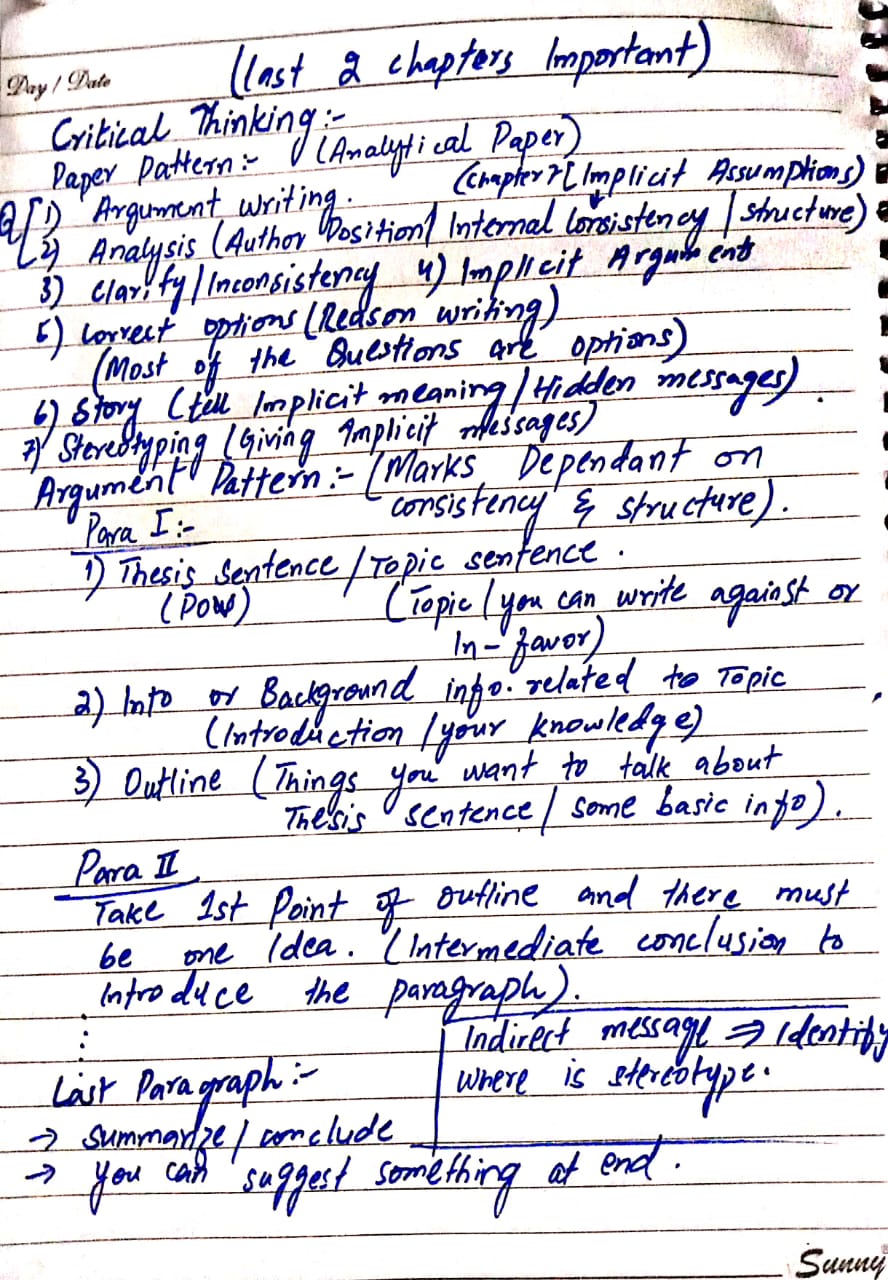 (last 2 chapters Important)
Day / Date
Critical Thinking :-
Paper Pattern :- (Analytical Paper)
(Chapter 7 [Implicit Assumptions)
Q[1) Argument writing.
2) Analysis (Author Position/ Internal Consistency / structure)
3) Clarity/Inconsistency 4) Implicit Arguments
5) Correct options (Reason writing)
(Most of the Questions are options)
6) Story (tell Implicit meaning / Hidden messages).
7) Stereotyping (Giving Implicit messages)
Argument Pattern :- (Marks Dependant on
consistency & structure).
Para I :-
1) Thesis Sentence / Topic sentence.
(Topic / you can write against or
In-favor)
2) Into or Background info. related to Topic
(Introduction / your knowledge)
3) Outline (Things you want to talk about
Thesis sentence / some basic info).
Para II
Take 1st Point of outline and there must
be one Idea. (Intermediate conclusion to
Introduce the paragraph).
Indirect message ⇒ Identify
where is stereotype.
Last Paragraph :-
→ summarize / conclude
→ you can suggest something at end.
Sunny